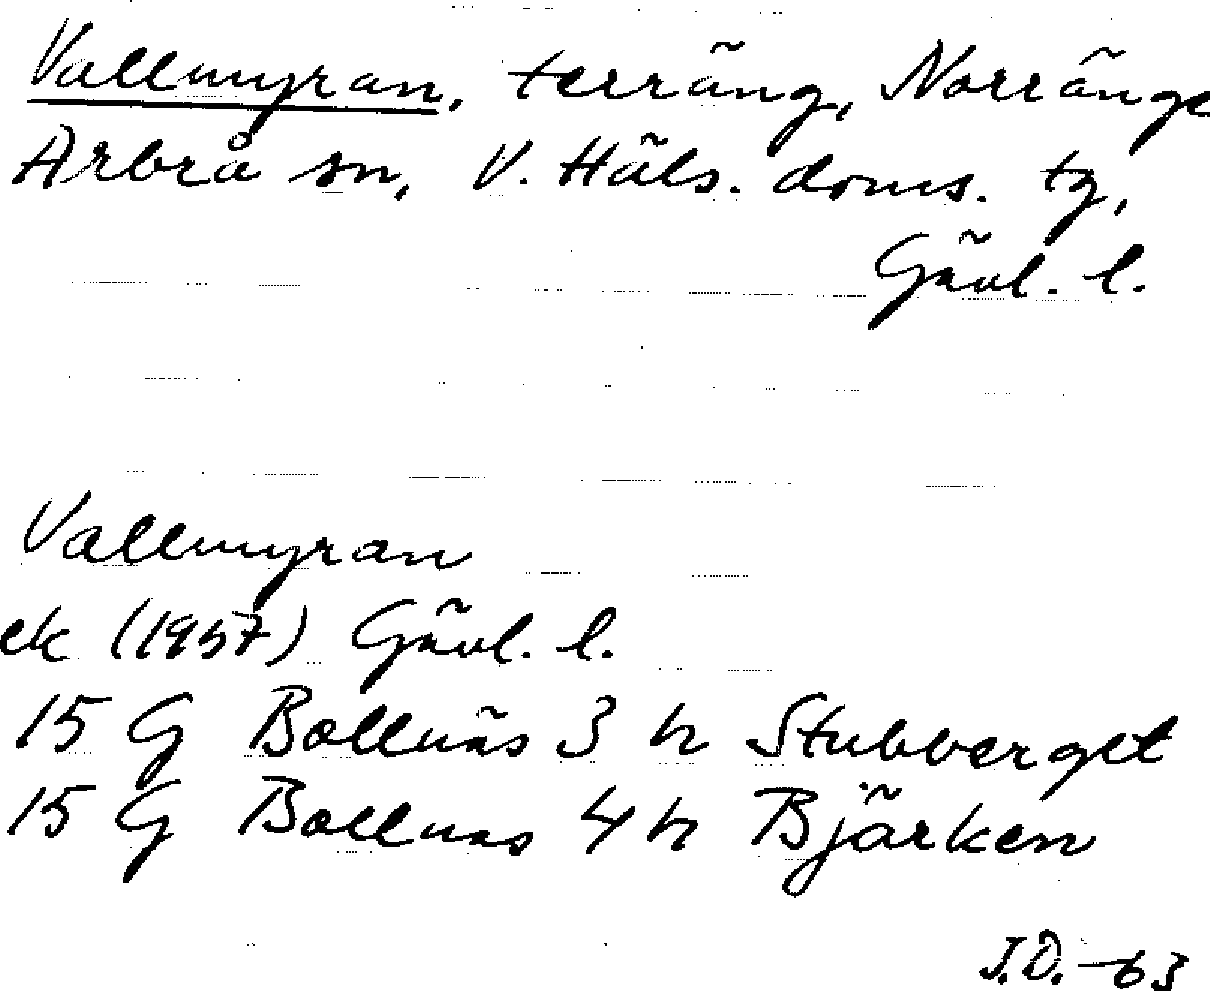 Vallmyran, terräng, Norränge
Arbrå sn, V. Häls. doms. tg,
Gävl. l.
Vallmyran
ek (1957) Gävl. l.
15 G Bollnäs 3 h Stubberget
15 G Bollnäs 4 h Björken
J.D.-63